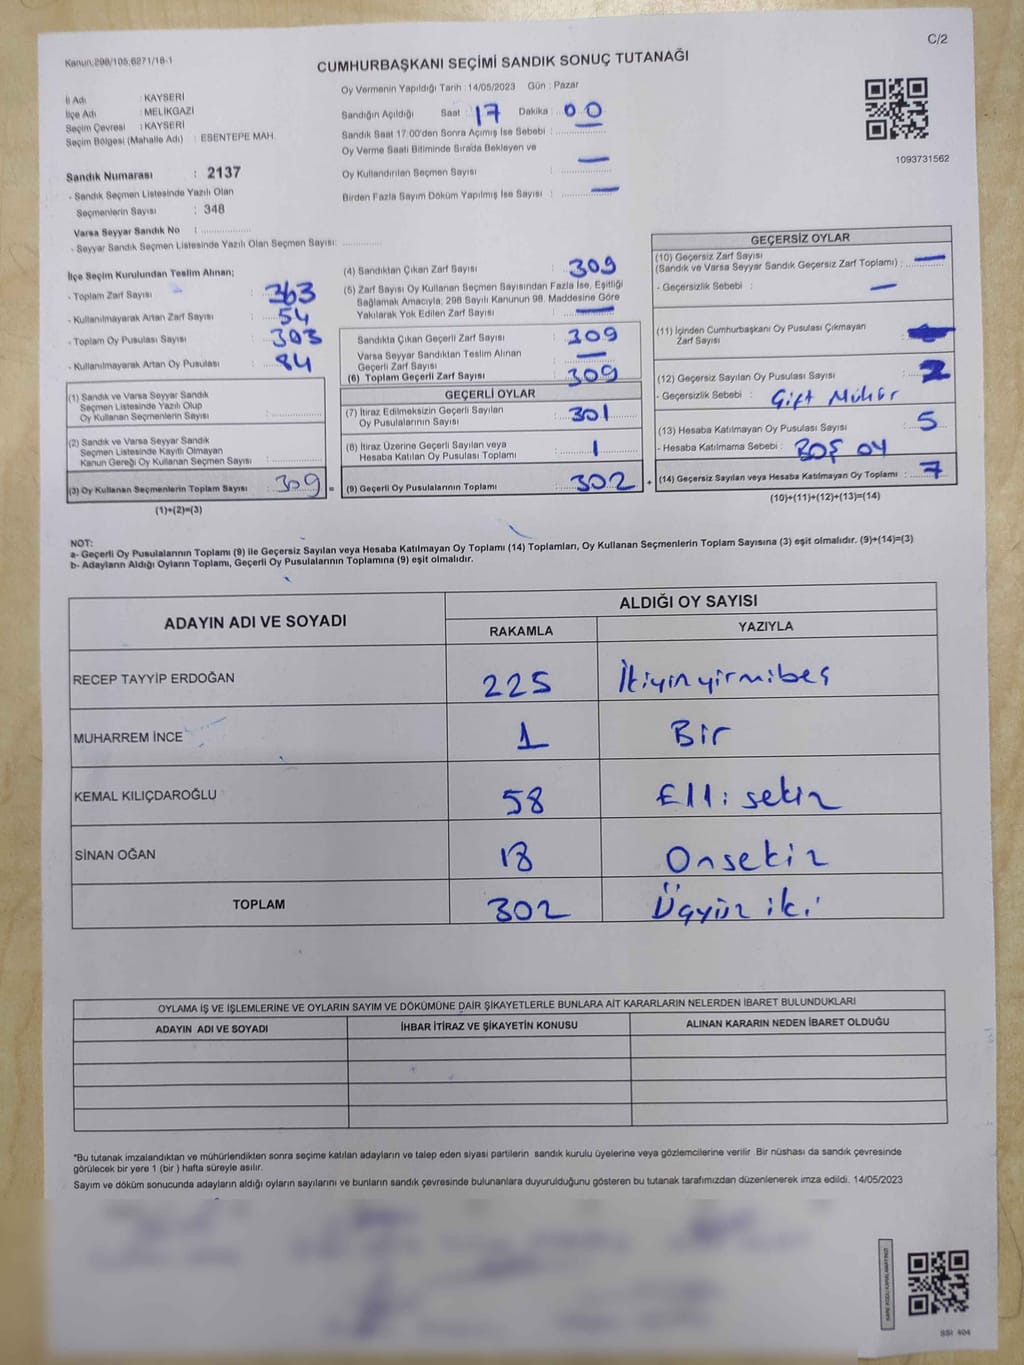 C/2
Kanun:298/105;6271/18-1
CUMHURBAŞKANI SEÇİMİ SANDIK SONUÇ TUTANAĞI
İl Adı : KAYSERİ
İlçe Adı : MELİKGAZİ
Seçim Çevresi : KAYSERİ
Seçim Bölgesi (Mahalle Adı) : ESENTEPE MAH.
Sandık Numarası : 2137
- Sandık Seçmen Listesinde Yazılı Olan
Seçmenlerin Sayısı : 348
Varsa Seyyar Sandık No :
- Seyyar Sandık Seçmen Listesinde Yazılı Olan Seçmen Sayısı:
Oy Vermenin Yapıldığı Tarih : 14/05/2023 Gün : Pazar
Sandığın Açıldığı Saat : 17 Dakika : 00
Sandık Saat 17:00'den Sonra Açımış İse Sebebi : —
Oy Verme Saati Bitiminde Sırada Bekleyen ve
Oy Kullandırılan Seçmen Sayısı : —
Birden Fazla Sayım Döküm Yapılmış İse Sayısı : —
1093731562
İlçe Seçim Kurulundan Teslim Alınan;
- Toplam Zarf Sayısı : 363
- Kullanılmayarak Artan Zarf Sayısı : 54
- Toplam Oy Pusulası Sayısı : 303
- Kullanılmayarak Artan Oy Pusulası : 84
(1) Sandık ve Varsa Seyyar Sandık
Seçmen Listesinde Yazılı Olup
Oy Kullanan Seçmenlerin Sayısı :
(2) Sandık ve Varsa Seyyar Sandık
Seçmen Listesinde Kayıtlı Olmayan
Kanun Gereği Oy Kullanan Seçmen Sayısı :
(3) Oy Kullanan Seçmenlerin Toplam Sayısı : 309 =
(1)+(2)=(3)
(4) Sandıktan Çıkan Zarf Sayısı : 309
(5) Zarf Sayısı Oy Kullanan Seçmen Sayısından Fazla İse, Eşitliği
Sağlamak Amacıyla, 298 Sayılı Kanunun 98. Maddesine Göre
Yakılarak Yok Edilen Zarf Sayısı : —
Sandıkta Çıkan Geçerli Zarf Sayısı : 309
Varsa Seyyar Sandıktan Teslim Alınan
Geçerli Zarf Sayısı : —
(6) Toplam Geçerli Zarf Sayısı : 309
GEÇERLİ OYLAR
(7) İtiraz Edilmeksizin Geçerli Sayılan
Oy Pusulalarının Sayısı : 301
(8) İtiraz Üzerine Geçerli Sayılan veya
Hesaba Katılan Oy Pusulası Toplamı : 1
(9) Geçerli Oy Pusulalarının Toplamı : 302 +
GEÇERSİZ OYLAR
(10) Geçersiz Zarf Sayısı
(Sandık ve Varsa Seyyar Sandık Geçersiz Zarf Toplamı) : —
- Geçersizlik Sebebi : —
(11) İçinden Cumhurbaşkanı Oy Pusulası Çıkmayan
Zarf Sayısı :
(12) Geçersiz Sayılan Oy Pusulası Sayısı : 2
- Geçersizlik Sebebi : Çift Mühür
(13) Hesaba Katılmayan Oy Pusulası Sayısı : 5
- Hesaba Katılmama Sebebi : BOŞ OY
(14) Geçersiz Sayılan veya Hesaba Katılmayan Oy Toplamı : 7
(10)+(11)+(12)+(13)=(14)
NOT:
a- Geçerli Oy Pusulalarının Toplamı (9) ile Geçersiz Sayılan veya Hesaba Katılmayan Oy Toplamı (14) Toplamları, Oy Kullanan Seçmenlerin Toplam Sayısına (3) eşit olmalıdır. (9)+(14)=(3)
b- Adayların Aldığı Oyların Toplamı, Geçerli Oy Pusulalarının Toplamına (9) eşit olmalıdır.
ADAYIN ADI VE SOYADI
ALDIĞI OY SAYISI
RAKAMLA YAZIYLA
RECEP TAYYİP ERDOĞAN 225 İkiyüzyirmibeş
MUHARREM İNCE 1 Bir
KEMAL KILIÇDAROĞLU 58 Elli sekiz
SİNAN OĞAN 18 Onsekiz
TOPLAM 302 Üçyüz iki
OYLAMA İŞ VE İŞLEMLERİNE VE OYLARIN SAYIM VE DÖKÜMÜNE DAİR ŞİKAYETLERLE BUNLARA AİT KARARLARIN NELERDEN İBARET BULUNDUKLARI
ADAYIN ADI VE SOYADI İHBAR İTİRAZ VE ŞİKAYETİN KONUSU ALINAN KARARIN NEDEN İBARET OLDUĞU
*Bu tutanak imzalandıktan ve mühürlendikten sonra seçime katılan adayların ve talep eden siyasi partilerin sandık kurulu üyelerine veya gözlemcilerine verilir .Bir nüshası da sandık çevresinde
görülecek bir yere 1 (bir ) hafta süreyle asılır.
Sayım ve döküm sonucunda adayların aldığı oyların sayılarını ve bunların sandık çevresinde bulunanlara duyurulduğunu gösteren bu tutanak tarafımızdan düzenlenerek imza edildi. 14/05/2023
SSI 404